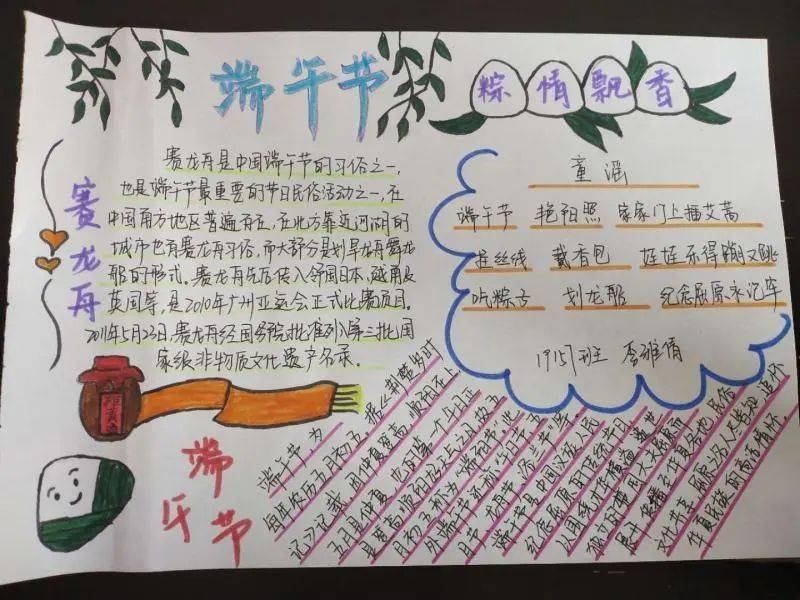 端午节
粽情飘香
赛龙舟
赛龙舟是中国端午节的习俗之一,
也是端午节最重要的节日民俗活动之一,在
中国南方地区普遍存在,在北方靠近河湖的
城市也有赛龙舟习俗,而大部分是划旱龙舟舞龙
船的形式。赛龙舟先后传入邻国日本、越南及
英国等,是2010年广州亚运会正式比赛项目。
2011年5月23日,赛龙舟经国务院批准列入第三批国
家级非物质文化遗产名录。
童谣
端午节 艳阳照 家家门上插艾蒿
挂丝线 戴香包 娃娃乐得蹦又跳
吃粽子 划龙船 纪念屈原永记牢
班 李雅倩
雄黄酒
端午节
端午节,为
每年农历五月初五。据《荆楚岁时
记》记载,因仲夏登高,顺阳在上,
五月是仲夏,它的第一个午日正
是登高顺阳好天气之日,故五
月初五称为“端阳节”。此
外端午节还称“午日节、五
月节、龙舟节、浴兰节”等。
端午节是中国汉族人民
纪念屈原的传统节日